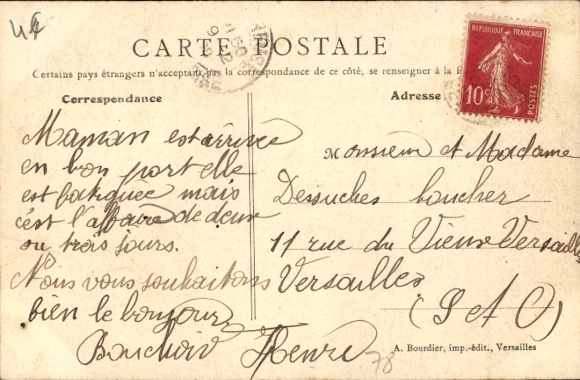 4€
CARTE POSTALE
Certains pays étrangers n'acceptant pas la correspondance de ce côté, se renseigner à la
Correspondance
Adresse
REPUBLIQUE FRANÇAISE
10c
POSTES
Maman est arrivée
en bon port elle
est fatiguée mais
c'est l'affaire de deux
ou trois jours.
Nous vous souhaitons
bien le bonjour
Henri
Monsieur et Madame
boucher
11 rue du Vieux Versailles
Versailles
(S et O)
78
A. Bourdier, imp.-édit., Versailles